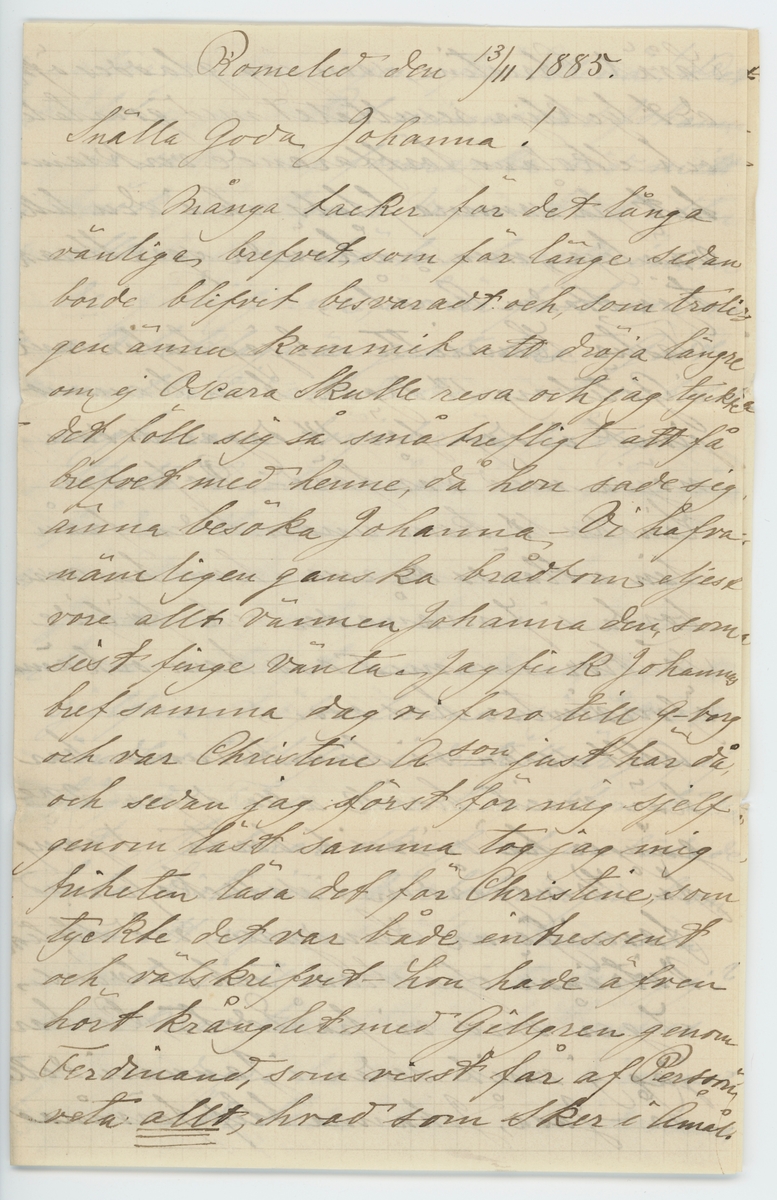 Romelid den 13/11 1885.
Snälla Goda Johanna!
Många tacker för det långa
vänliga brefvet, som för länge sedan
borde blifvit besvaradt och, som troli-
gen ännu kommit att dröja längre
om ej Oscara skulle resa och jag tyckte
det föll sig så småtrefligt att få
brefvet med henne, då hon sade sig
ämna besöka Johanna – Vi hafva
nämligen ganska brådtom eljest
vore allt vännen Johanna den, som
sist finge vänta. Jag fick Johannas
bref samma dag vi foro till G-borg
och var Christine Ason just här då,
och sedan jag först för mig sjelf
genom läst samma tog jag mig
friheten läsa det för Christine, som
tyckte det var både entressent
och välskrifvet – hon hade äfven
hört krånglet med Gillgren genom
Ferdinand, som visst får af Person
veta allt, hvad som sker i Åmål.